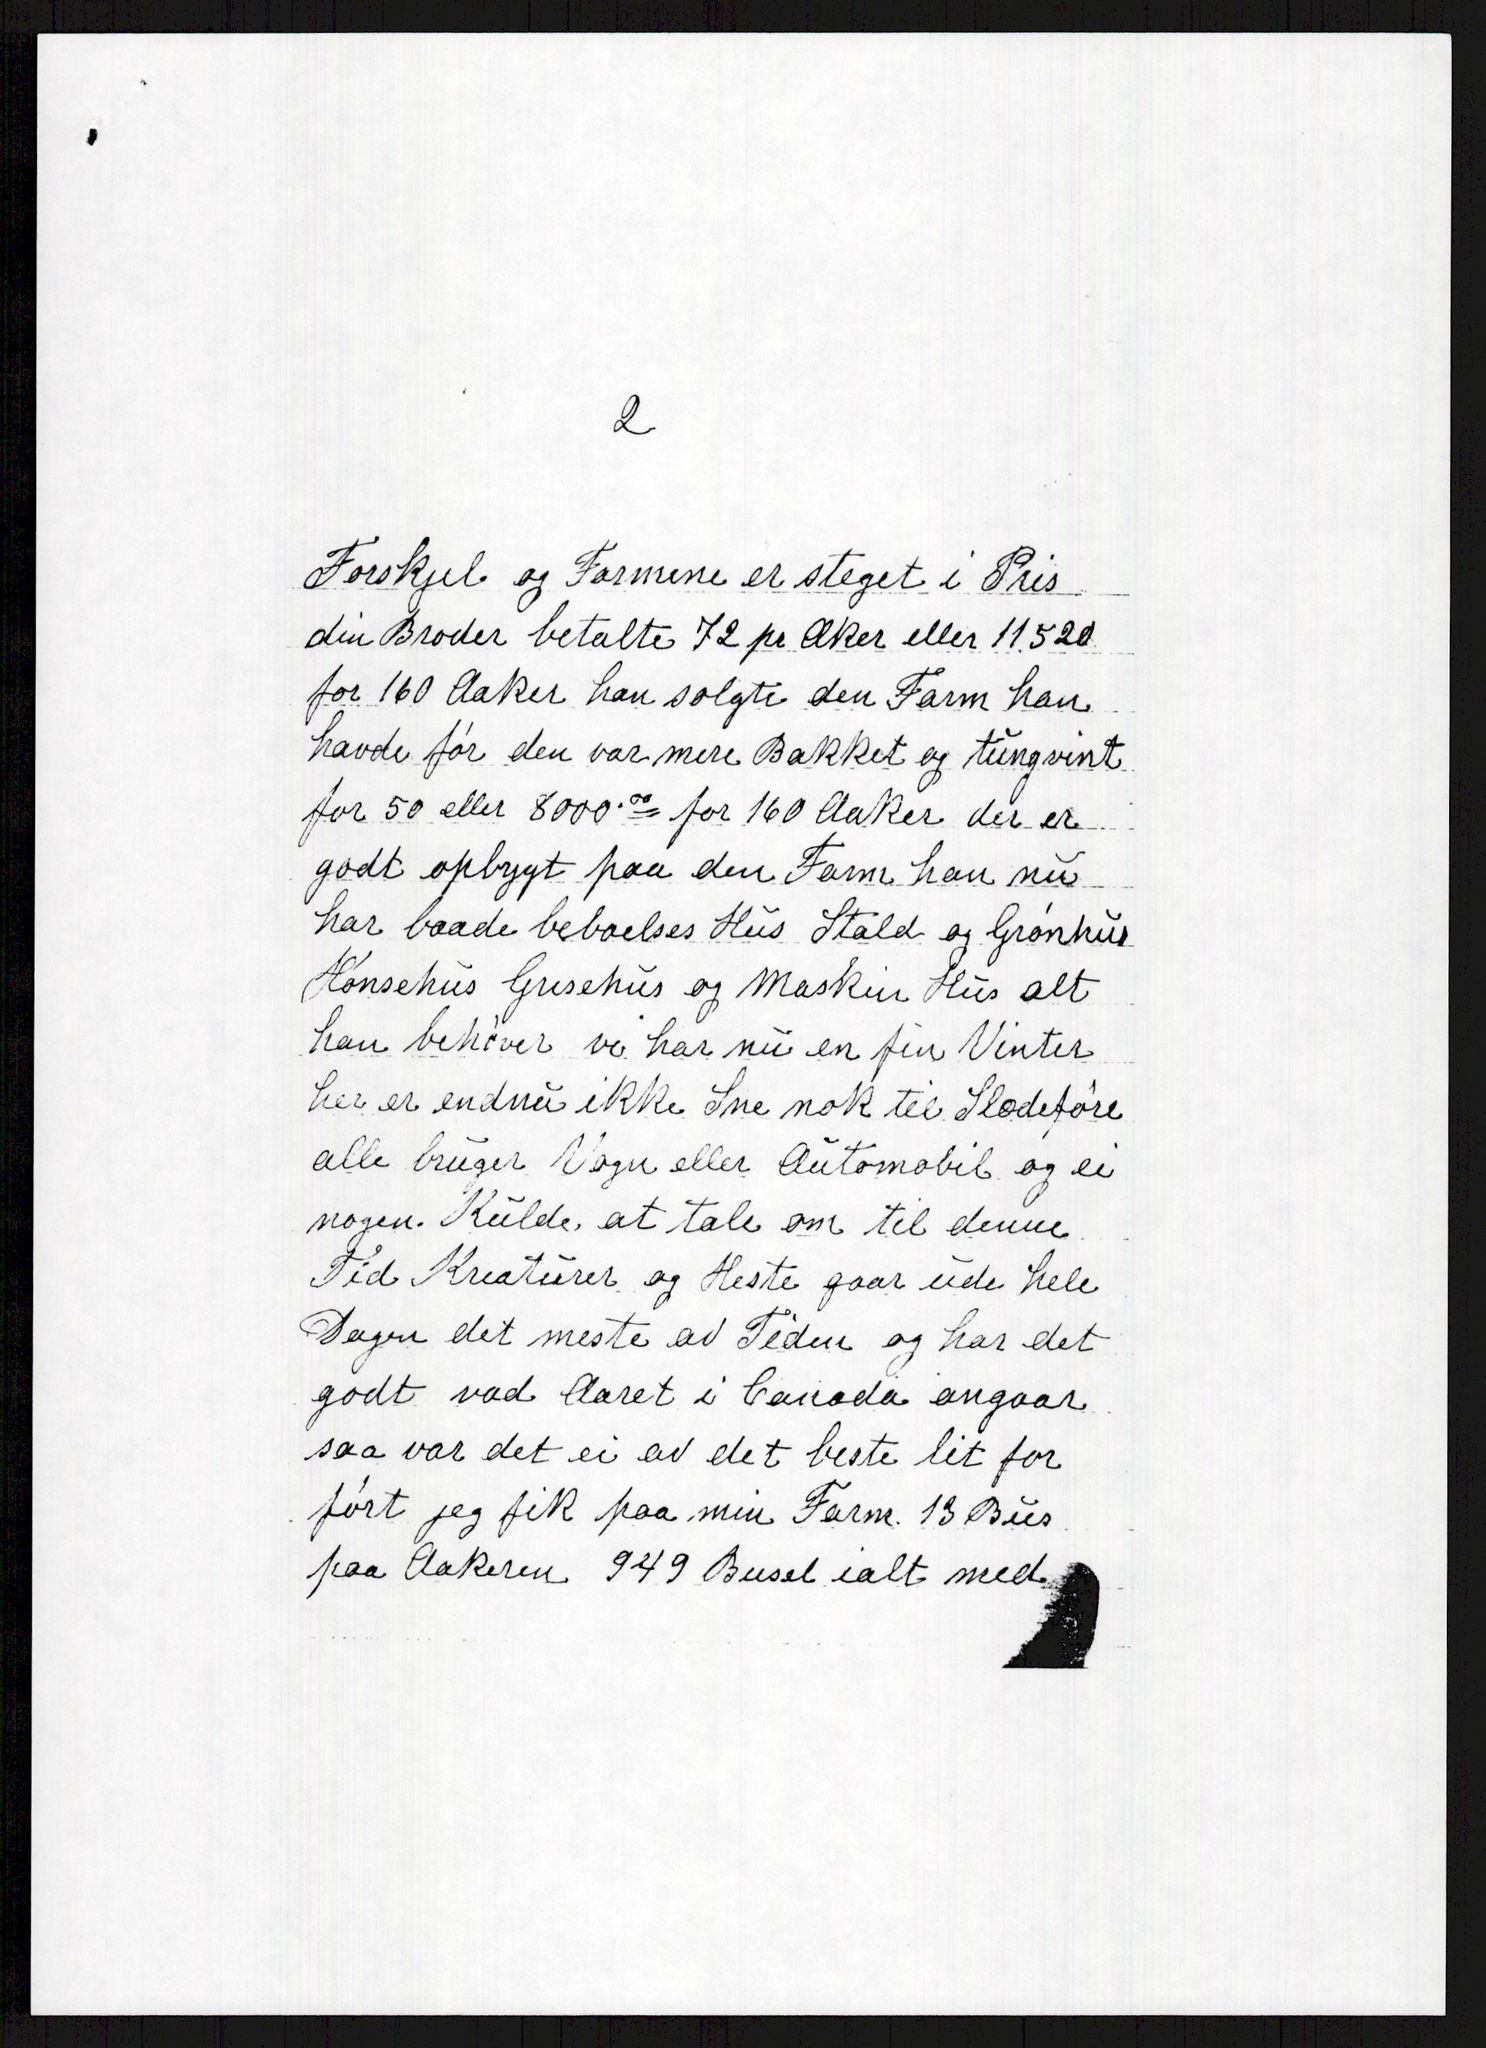 2
Forskjel og Farmene er steget i Pris
din Broder betalte 72 pr Aker eller 11.520
for 160 Aaker han solgte den Farm han
havde før den var mere Bakket og tungvint
for 50 eller 8000.00 for 160 Aaker der er
godt opbygt paa den Farm han nu
har baade beboelses Hus Stald og Grønhus
Hønsehus Grisehus og Maskin Hus alt
han behøver vi har nu en fin Vinter
her er endnu ikke Sne nok til Slædeføre
alle bruger Vogn eller Automobil og ei
nogen Kulde at tale om til denne
Tid Kreaturer og Heste gaar ude hele
Dagen det meste av Tiden og har det
godt vad Aaret i Canada angaar
saa var det ei av det beste lit for
tørt jeg fik paa min Farm 13 Bus
paa Aakeren 949 Busel ialt med